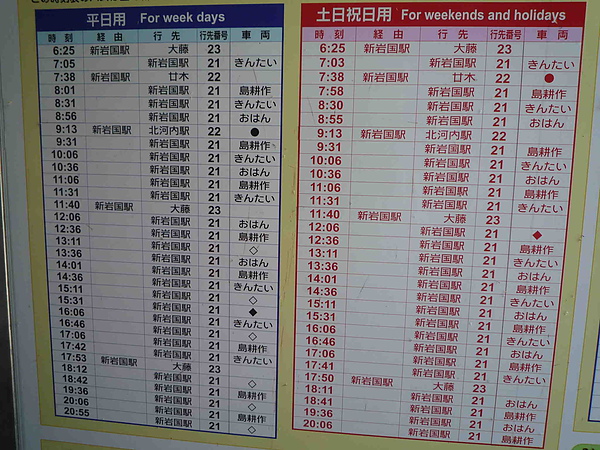 平日用 For week days
時刻 経由 行先 行先番号 車両
6:25 新岩国駅 大藤 23
7:05 新岩国駅 21 きんたい
7:38 新岩国駅 廿木 22
8:01 新岩国駅 21 島耕作
8:31 新岩国駅 21 きんたい
8:56 新岩国駅 21 おはん
9:13 新岩国駅 北河内駅 22 ●
9:31 新岩国駅 21 島耕作
10:06 新岩国駅 21 きんたい
10:36 新岩国駅 21 おはん
11:06 新岩国駅 21 島耕作
11:31 新岩国駅 21 きんたい
11:40 新岩国駅 大藤 23
12:06 新岩国駅 21 おはん
12:36 新岩国駅 21 島耕作
13:11 新岩国駅 21 ◇
13:36 新岩国駅 21 きんたい
14:01 新岩国駅 21 おはん
14:36 新岩国駅 21 島耕作
15:11 新岩国駅 21 きんたい
15:31 新岩国駅 21 ◇
16:06 新岩国駅 21 ◆
16:46 新岩国駅 21 きんたい
17:06 新岩国駅 21 ◇
17:42 新岩国駅 21 島耕作
17:53 新岩国駅 21 きんたい
18:12 新岩国駅 大藤 23
18:42 新岩国駅 21 ◇
19:36 新岩国駅 21 島耕作
20:06 新岩国駅 21 ◇
20:55 新岩国駅 21 ◇
土日祝日用 For weekends and holidays
時刻 経由 行先 行先番号 車両
6:25 新岩国駅 大藤 23
7:03 新岩国駅 21 きんたい
7:38 新岩国駅 廿木 22 ●
7:58 新岩国駅 21 島耕作
8:30 新岩国駅 21 きんたい
8:55 新岩国駅 21 おはん
9:13 新岩国駅 北河内駅 22
9:31 新岩国駅 21 島耕作
10:06 新岩国駅 21 きんたい
10:36 新岩国駅 21 おはん
11:06 新岩国駅 21 島耕作
11:31 新岩国駅 21 きんたい
11:40 新岩国駅 大藤 23
12:06 新岩国駅 21 ◆
12:36 新岩国駅 21 島耕作
13:11 新岩国駅 21 きんたい
13:36 新岩国駅 21 おはん
14:01 新岩国駅 21 島耕作
14:36 新岩国駅 21 きんたい
15:11 新岩国駅 21 おはん
15:31 新岩国駅 21 島耕作
16:06 新岩国駅 21 きんたい
16:46 新岩国駅 21 おはん
17:06 新岩国駅 21 島耕作
17:41 新岩国駅 21 きんたい
17:50 新岩国駅 大藤 23
18:11 新岩国駅 21 おはん
18:41 新岩国駅 21 島耕作
19:36 新岩国駅 21 きんたい
20:06 新岩国駅 21 島耕作